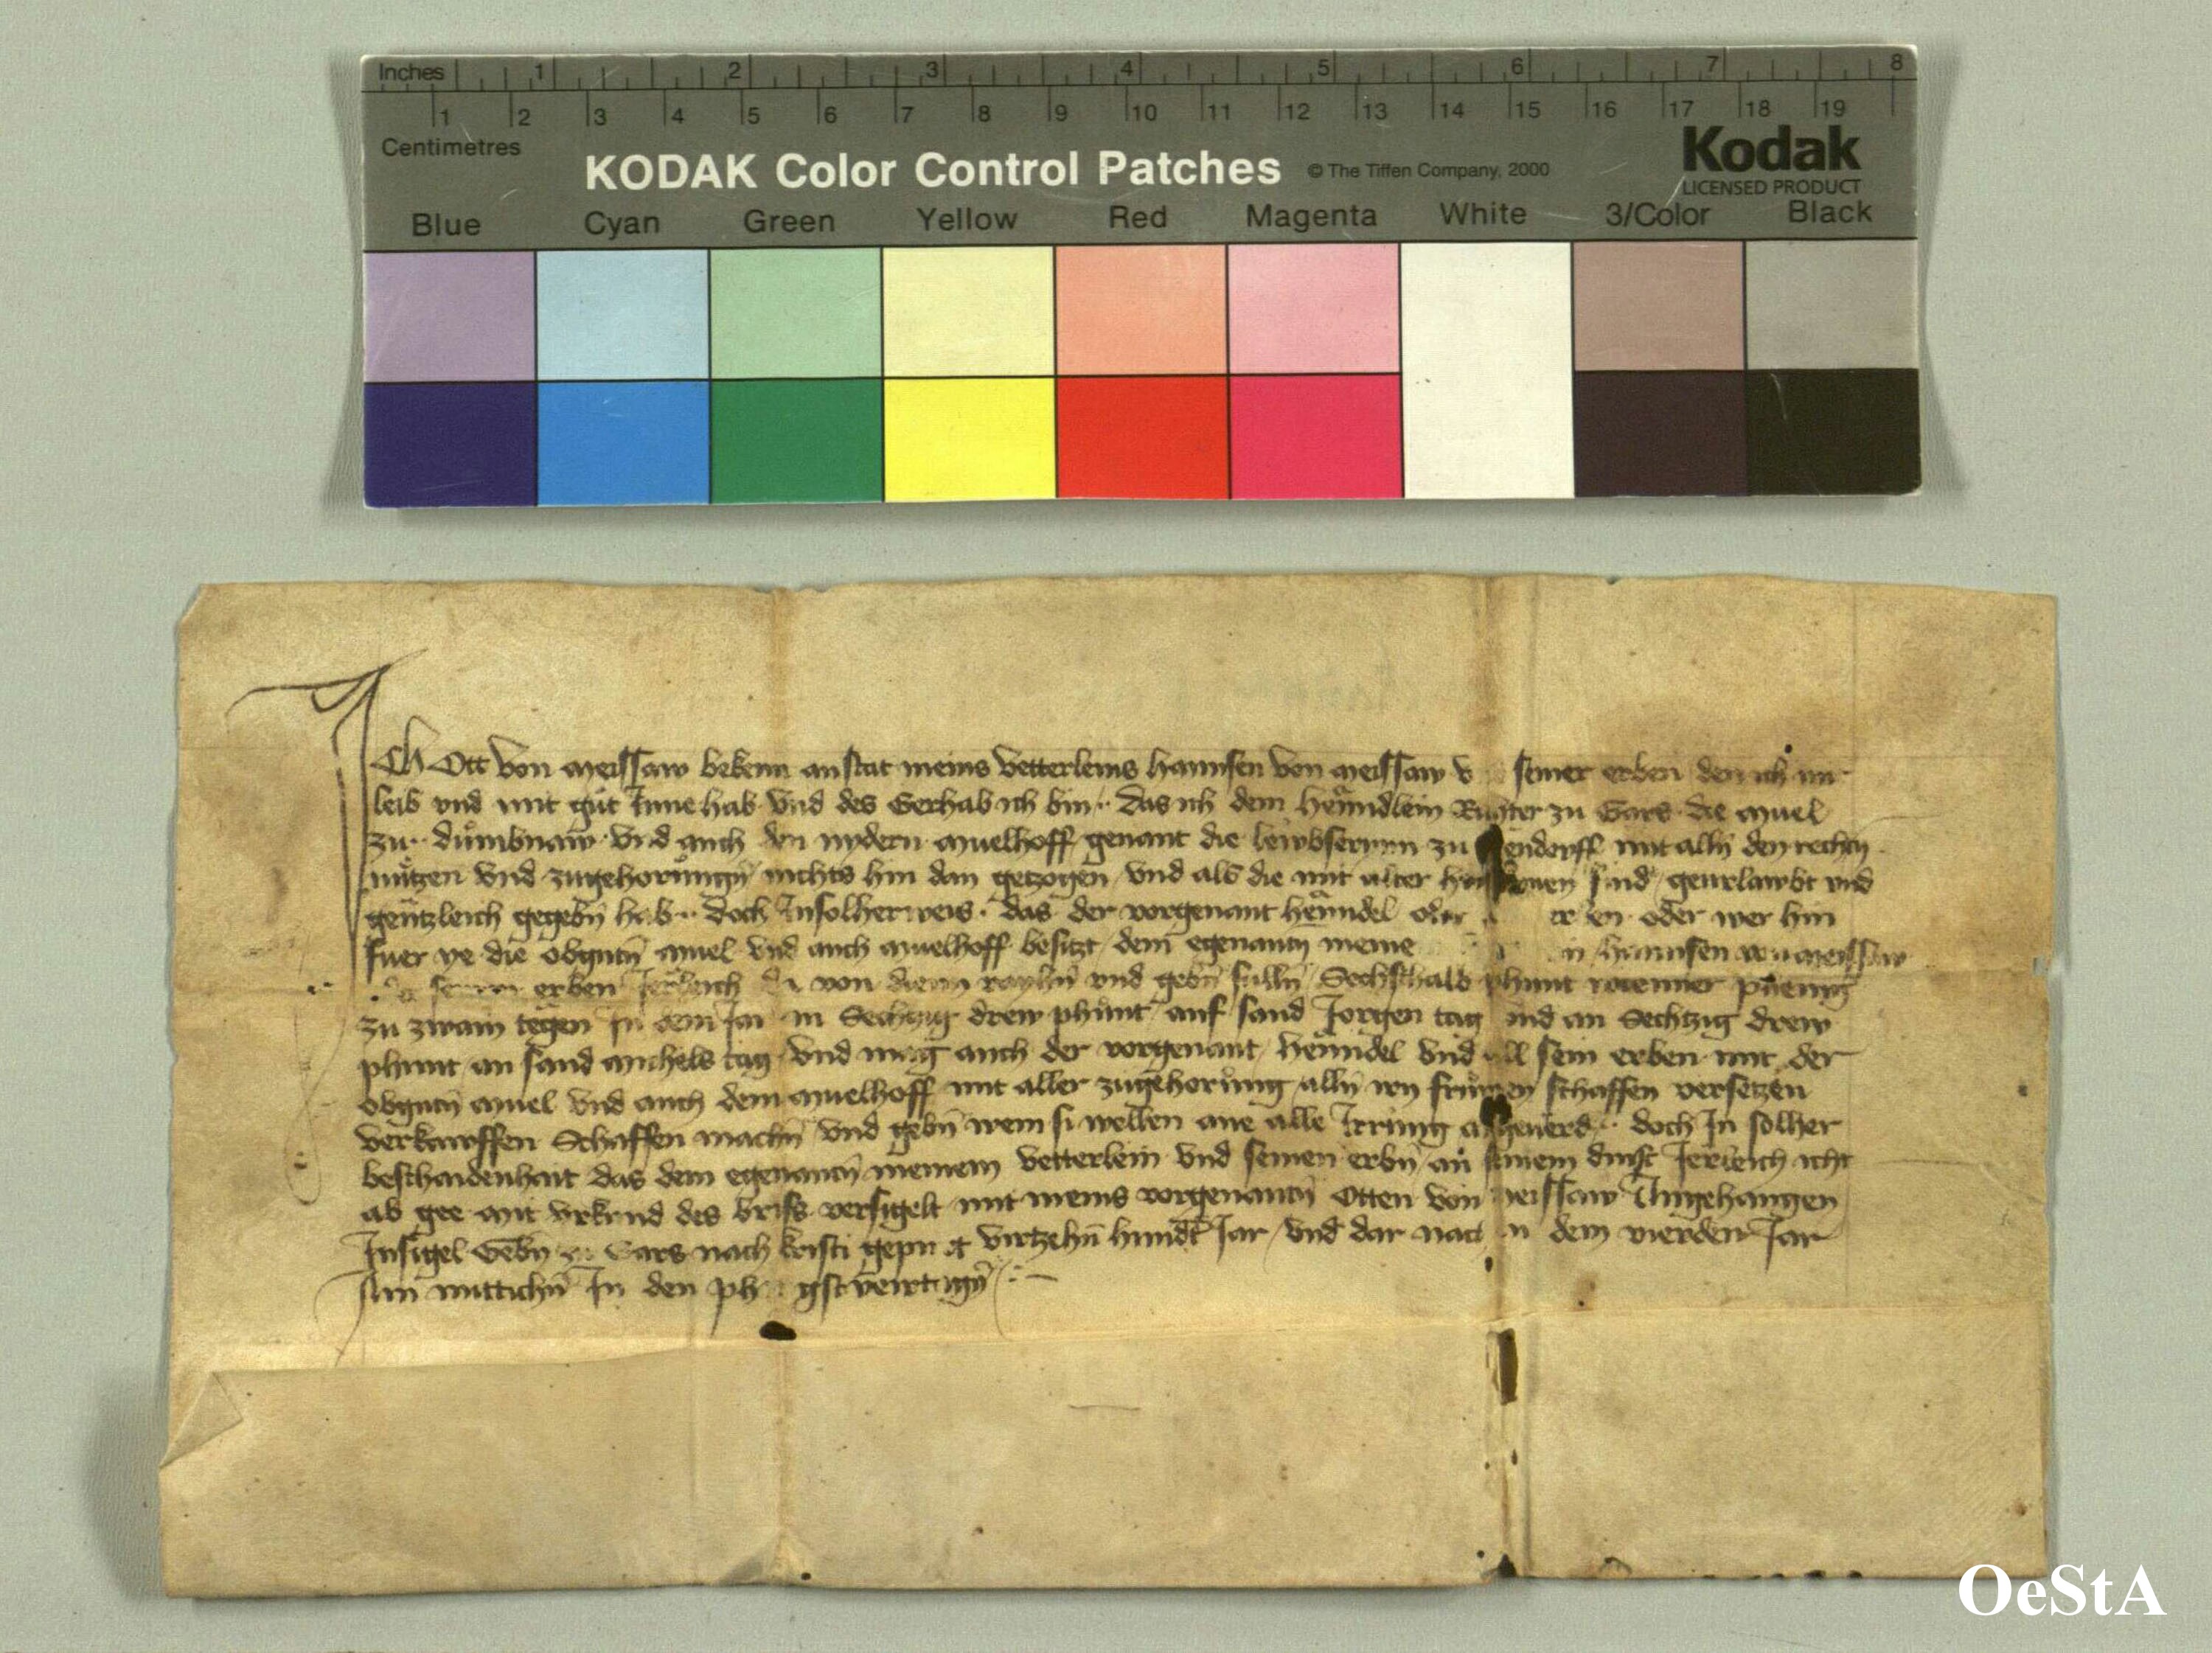 Inches 1 2 3 4 5 6 7 8
1 2 3 4 5 6 7 8 9 10 11 12 13 14 15 16 17 18 19
Centimetres
KODAK Color Control Patches © The Tiffen Company, 2000 Kodak
LICENSED PRODUCT
Blue Cyan Green Yellow Red Magenta White 3/Color Black
Ich Ott von Meissaw bekenn anstat meins vetterleins hannsen von Meissaw v seiner erben den ich mit
leib vnd mit gut Innehab vnd des Gerhab ich bin das ich dem Henndlein Richter zu Gars die Muel
zu vnd auch den nydern Muelhoff genant die zu mit alln den rechtn
nützen vnd zugehorungn nichts hin dan getzogen vnd als die mit alter sind geurlawbt vnd
gentzleich gegebn hab doch Insolher weis das der vorgenant Henndel oder er en oder wer hin
fuer ye die obgntn Muel vnd auch Muelhoff besitzt dem egenantn meine n hannsen von Meissaw
erben Jerleich von raychn vnd gebn sulln Sechsthalb phunt wienner phenig
zu zwain tegen In dem Jar Sechtzig drew phunt auf sand Jorgen tag vnd an Sechtzig drew
phunt an sand Michels tag vnd mag auch der vorgenant Henndel vnd all sein erben mit der
obgntn Muel vnd auch dem Muelhoff mit aller zugehorung alln irn frumen schaffen versetzen
verkawffen Schaffen machn vnd gebn wem si wellen ane alle Irrung doch In solher
beschaidenhait das dem egenantn meinem vetterlein vnd seinen erbn an seinem dinst Jerleich icht
ab gee Mit vrkund des brifs versigelt mit meins vorgenantn Otten von Meissaw Angehangen
Insigel Gebn zu Gars nach kristi gepurt virtzehn hundert Jar vnd dar nach in dem vierden Jar
Am mittichn In den phingstveirtagn
OeStA